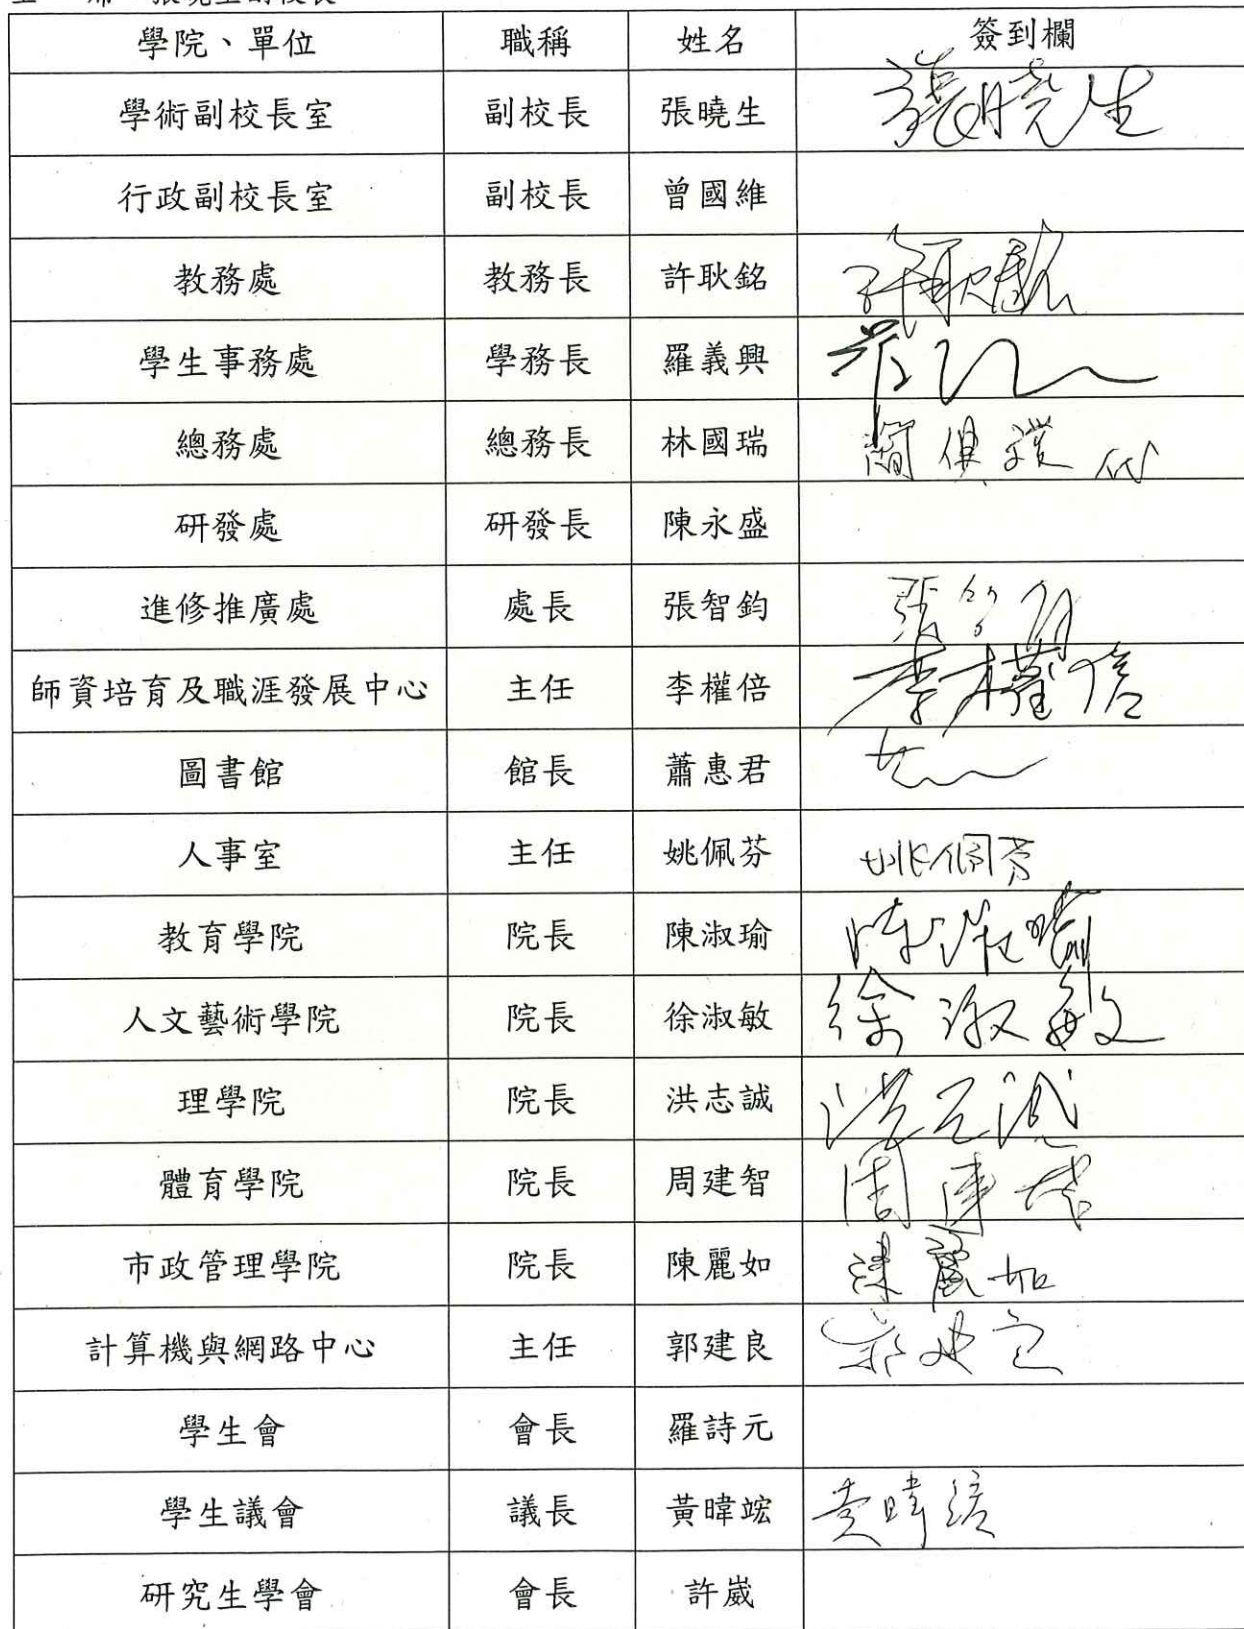 學院、單位 職稱 姓名 簽到欄
學術副校長室 副校長 張曉生 張曉生
行政副校長室 副校長 曾國維
教務處 教務長 許耿銘 許耿銘
學生事務處 學務長 羅義興
總務處 總務長 林國瑞 簡俱 代
研發處 研發長 陳永盛
進修推廣處 處長 張智鈞
師資培育及職涯發展中心 主任 李權倍 李權倍
圖書館 館長 蕭惠君
人事室 主任 姚佩芬 姚佩芬
教育學院 院長 陳淑瑜 陳淑瑜
人文藝術學院 院長 徐淑敏 徐淑敏
理學院 院長 洪志誠 洪志誠
體育學院 院長 周建智 周建智
市政管理學院 院長 陳麗如 陳麗如
計算機與網路中心 主任 郭建良
學生會 會長 羅詩元
學生議會 議長 黃暐竤 黃暐竤
研究生學會 會長 許崴